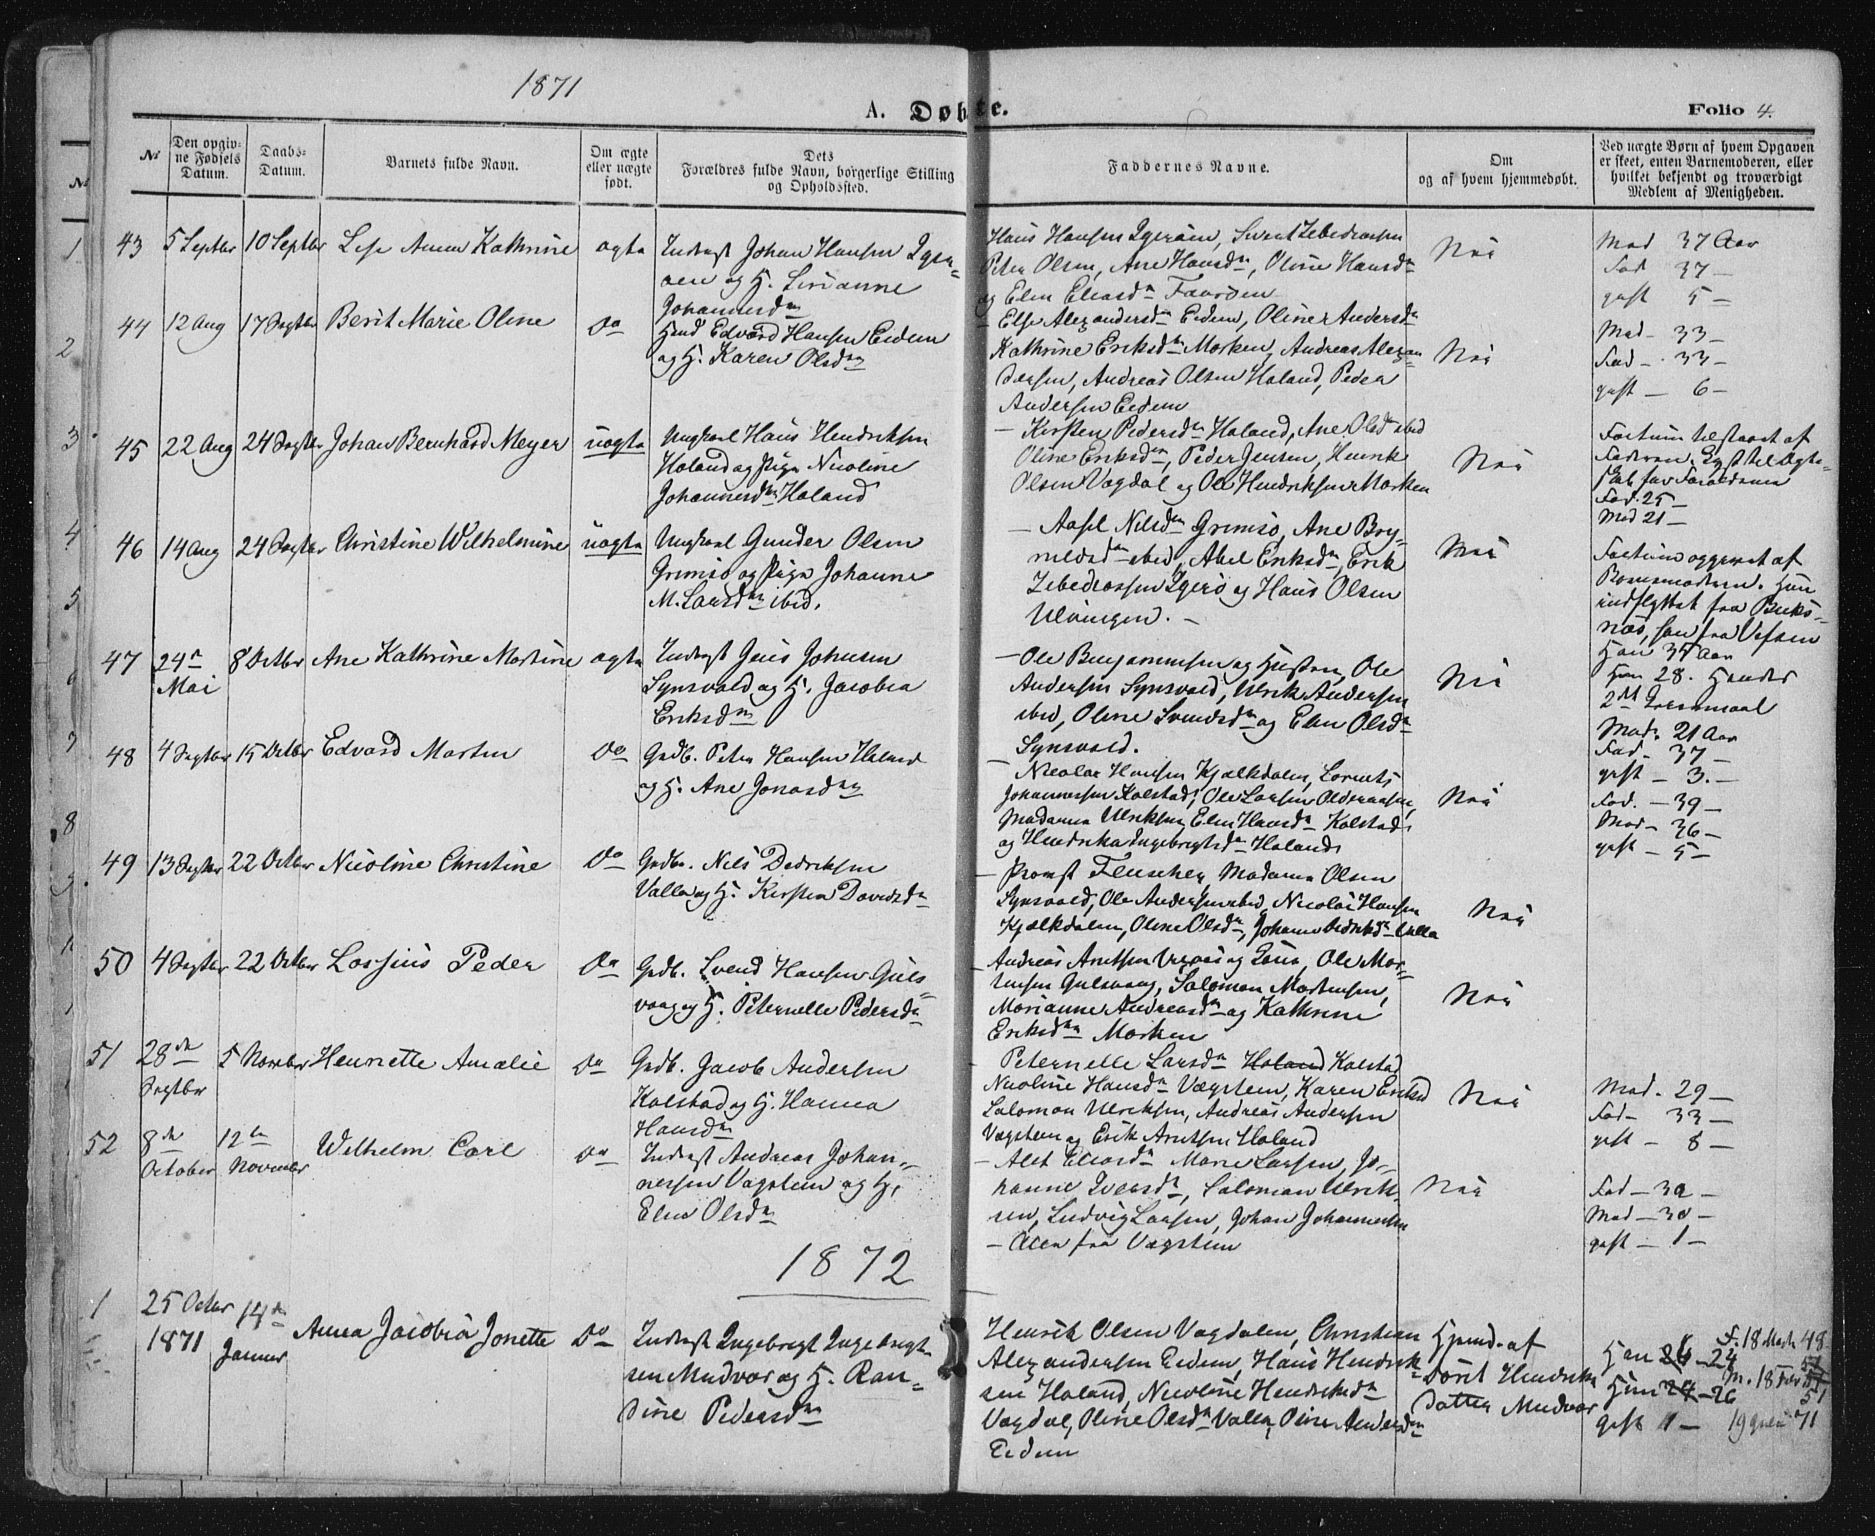 1871
A. Døbte.
Folio 4.
No
Den opgivne Fødsels Datum.
Daabs-Datum.
Barnets fulde Navn.
Om ægte eller uægte født.
Dets Forældres fulde Navn, borgerlige Stilling og Opholdssted.
Faddernes Navne.
Om og af hvem hjemmedøbt.
Ved uægte Børn af hvem Opgaven er skeet, enten Barnemoderen, eller hvilket bekjendt og troværdigt Medlem af Menigheden.
43 5 Septbr 10 Septbr Anna Kathrine ægte
Inderst Johan Hansen
og H.
Johannesdn
Hans Hansen Igerøen,
Peter Olsen, Ane Hansdn, Oline Hansdn
og Elen Eliasdn
Nei
Mod 37 Aar
Fad 37 —
gift 5 —
44 12 Aug 17 Septbr Berit Marie Oline Do
Edvard Hansen Eidem
og H. Karen Olsdn
— Else Alexandersdn Eidem, Oline Andersdn
Kathrine Eriksdn Marken, Andreas Alexan-
dersen, Andreas Olsen Haland, Peder
Andersen Eidem
Nei
Mod — 33 —
Fad — 33 —
gift — 6 —
45 22 Aug 24 Septbr Johan Bernhard Meyer uægte
Ungkarl Hans Hendriksen
Haland og Pige Nicoline
Johannesdn Haland
— Kirsten Pedersdn Haland, Ane Olsdn ibid
Oline Eriksdn, Peder Jensen, Henrik
Olsen Vagdal og Ole Hendriksen Marken
Nei
Faderen. Lyst til Ægte-
skab for Forældrene
Fad. 25 —
Mod 21 —
46 14 Aug 24 Septbr Christine Wilhelmine uægte
Ungkarl Gunder Olsen
Grimsø og Pige Johanne
M. Larsdn ibid.
— Nilsdn Grimsø, Ane Bry-
ibid, Abel Eriksdn, Erik
Zebediassen Igerø og Hans Olsen
Ulvingen. —
Nei
opgivet af
Barnemoderen. Hun
indflyttet fra Buks-
næs, han fra Vefsen
Han 35 Aar
Hun 28. Hendes
2det
47 24n Mai 8 Octbr Ane Kathrine Martine ægte
Inderst Jens Johnsen
Synsvold og H. Jacobia
Eriksdn
— Ole Benjaminsen og Hustru, Ole
Andersen Synsvold, Ulrik Andersen
ibid, Oline Svendsdn og Elen Olsdn
Synsvold.
Nei
Mod. 21 Aar
Fad. 37 —
gift — 3. —
48 4 Septbr 15 Octbr Edvard Martin Do
Grdb. Peter Hansen Haland
og H. Ane Jonasdn
— Nicolai Hansen Kjælkdalen, Lornts
Johannessen Kolstad, Ole Larsen
Madama Ulriksen, Elen Hansdn Kolstad
og Hendrika Ingebrigtsdn Haland
Nei
Fad. — 39 —
Mod — 36 —
gift — 5 —
49 13 Septbr 22 Octbr Nicoline Christine Do
Grdb. Nils Dedriksen
Valla og H. Kirsten Davidsdn
— Provst Fleischer, Madama Olsen
Synsvold, Ole Andersen ibid, Nicolai Hansen
Kjælkdalen, Oline Olsdn, Johanna Dedriksdn Valla
Nei
50 4 Septbr 22 Octbr Peder Do
Grdb. Svend Hansen Guls-
vaag og H. Peternelle Pedersdn
— Andreas Arntsen og Kone, Ole Mor-
tensen Gulsvaag, Salomon Mortensen,
Marianne Andreasdn og Kathrine
Eriksdn Marken
Nei
51 28de Septbr 5 Novbr Henriette Amalie Do
Grdb. Jacob Andersen
Kolstad og H. Hanna
Hansdn
Peternelle Larsdn Haland Kolstad
Nicoline Hansdn Vægstein, Karen Eriksd
Salomon Ulriksen, Andreas Andersen
Vægstein og Erik Arntsen Haland
Nei
Mod. 29 —
Fad — 33 —
gift — 8 —
52 8de October 12te November Wilhelm Carl Do
Inderst Andreas Johan-
nessen Vægstein og H.
Elen Olsdn
— Alet Eliasdn, Marie Larsen, Jo-
hanne Iversdn, Salomon Ulrik-
sen, Ludvig Larsen, Johan Johannessen
— Alle fra Vægstein
Nei
Fad — 32 —
Mod — 30 —
gift — 1 —
1872
1 25 Octbr 1871 14de Januar Anna Jacobia Jonette Do
Inderst Ingebrigt Ingebrigt-
sen Mudvar og H. Ran-
dine Pedersdn
Henrik Olsen Vagdalen, Christian
Alexandersen Eidem, Hans Hendrik-
sen Haland, Nicoline Hendriksdn
Vagdal, Oline Olsdn Valla, Oline Andersdn
Eidem
Hjemd. af
Dorit Hendriks
datter Mudvar
Han 26 — 24
Hun 27 — 26
gift 1 —
F. 18 Marts 48
M. 18 Febr 51
51
71